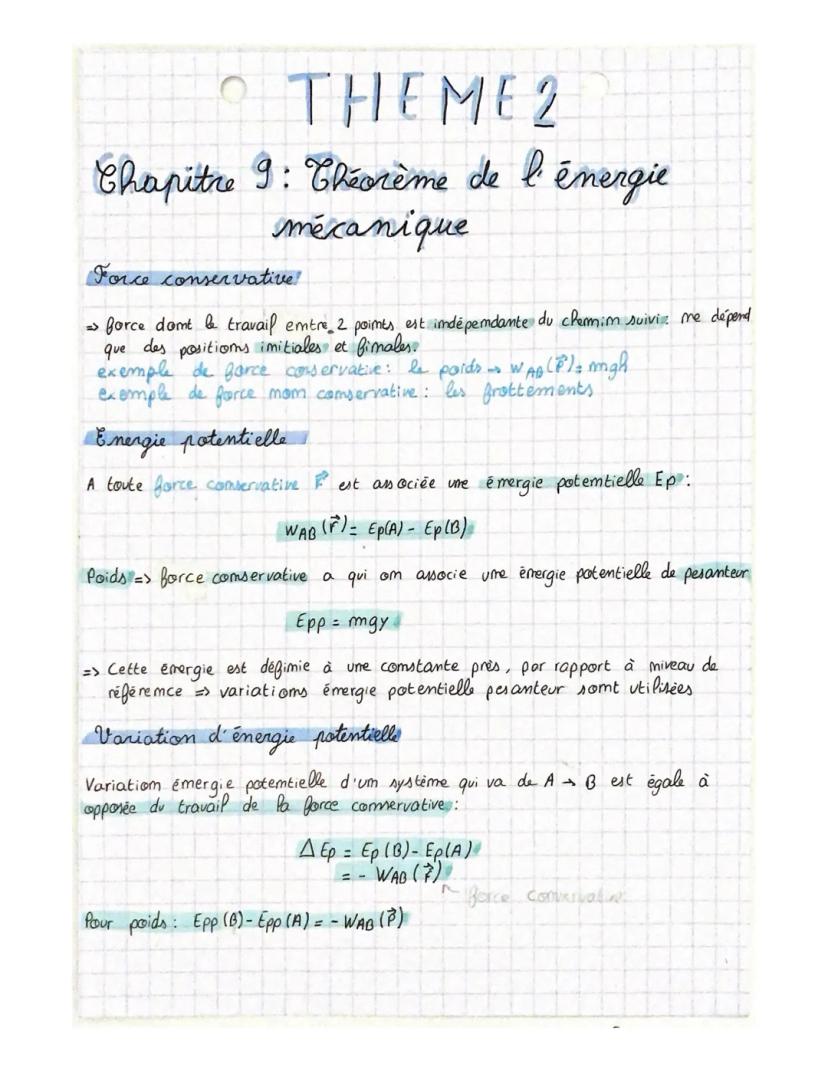 THEME 2
Chapitre 9 : Théorème de l'énergie
mécanique
Force conservative
=> force dont le travail entre 2 points est indépendante du chemin suivi : ne dépend
que des positions initiales et finales.
exemple de force conservative : le poids → WAB(P⃗) = mgh
exemple de force non conservative : les frottements
Energie potentielle
A toute force conservative F⃗ est associée une énergie potentielle Ep :
WAB(F⃗) = Ep(A) - Ep(B)
Poids => force conservative a qui on associe une énergie potentielle de pesanteur
Epp = mgy
=> Cette énergie est définie à une constante près, par rapport à niveau de
référence => variations énergie potentielle pesanteur sont utilisées
Variation d'énergie potentielle
Variation énergie potentielle d'un système qui va de A → B est égale à
opposée du travail de la force conservative :
ΔEp = Ep(B) - Ep(A)
= - WAB(F⃗)
force conservative
Pour poids : Epp(B) - Epp(A) = - WAB(P⃗)